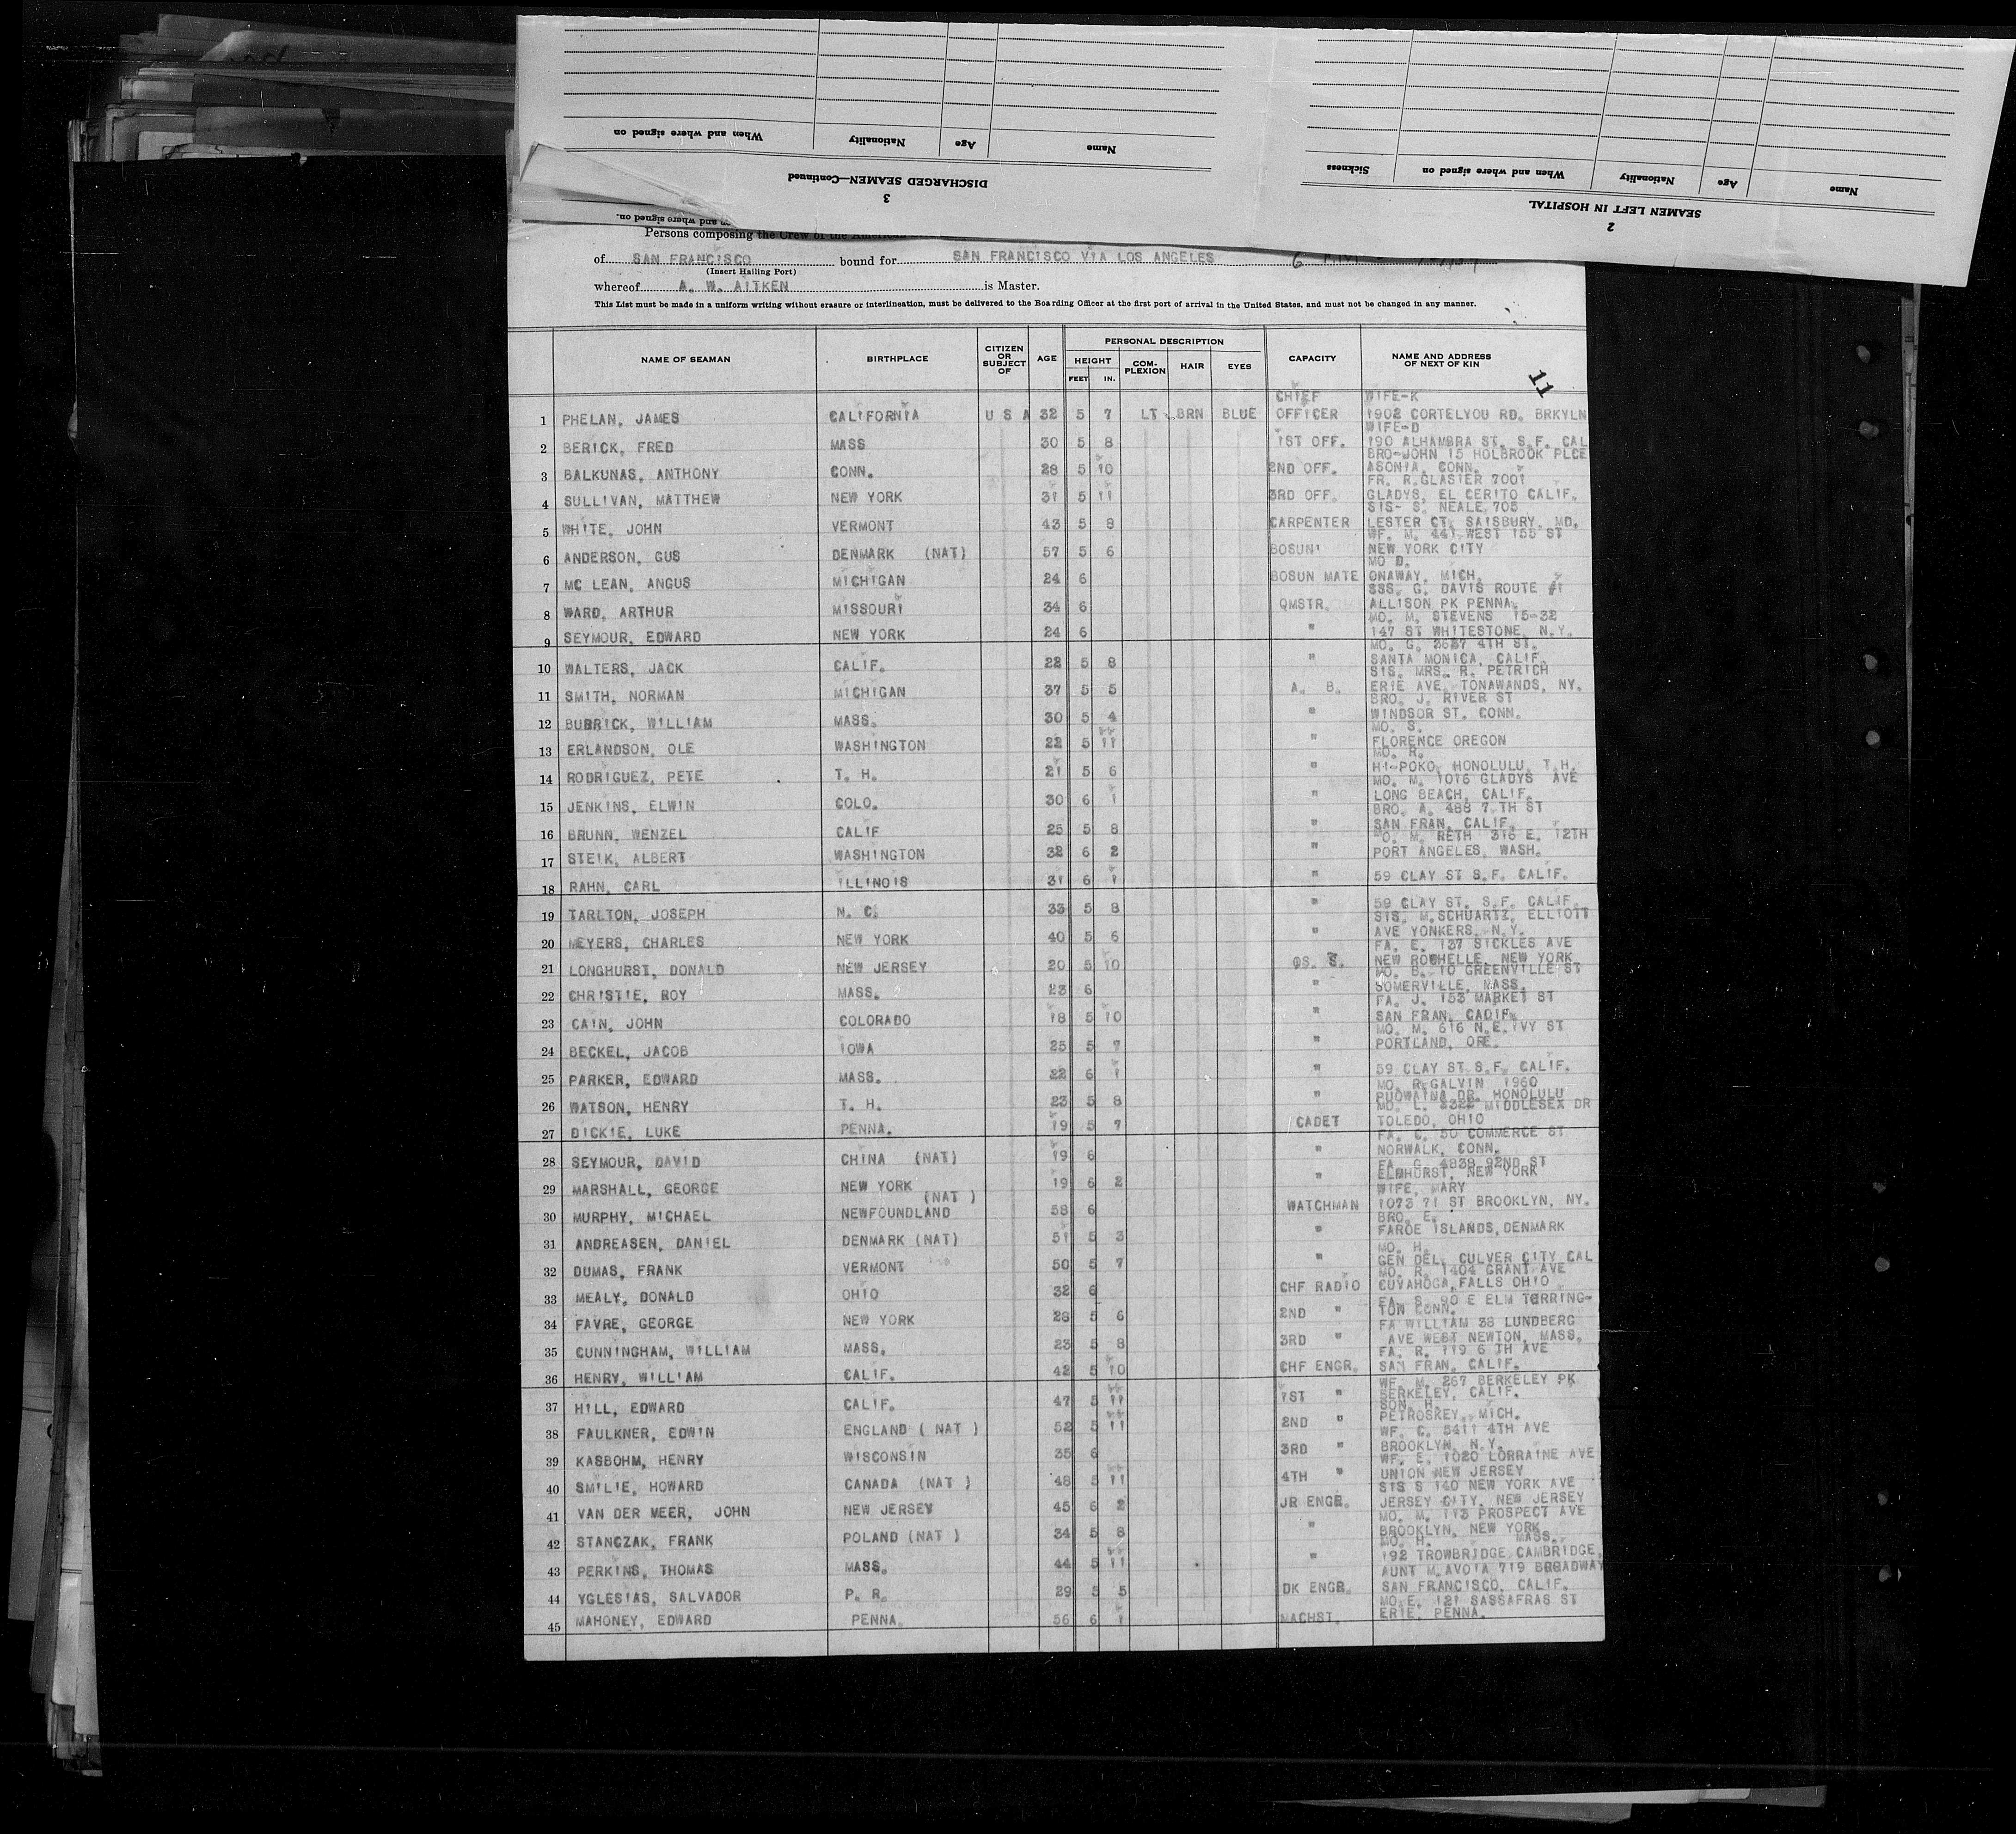 When and where signed on
Nationality
Age
Name
DISCHARGED SEAMEN—Continued
3
Sickness
When and where signed on
Nationality
Age
Name
SEAMEN LEFT IN HOSPITAL
2
and where signed on.
Persons composing the Crew of the American
of SAN FRANCISCO bound for SAN FRANCISCO VIA LOS ANGELES
(Insert Hailing Port)
whereof A. W. AITKEN is Master.
This List must be made in a uniform writing without erasure or interlineation, must be delivered to the Boarding Officer at the first port of arrival in the United States, and must not be changed in any manner.
NAME OF SEAMAN BIRTHPLACE CITIZEN OR SUBJECT OF AGE PERSONAL DESCRIPTION HEIGHT FEET IN. COM-PLEXION HAIR EYES CAPACITY NAME AND ADDRESS OF NEXT OF KIN
11
1 PHELAN, JAMES CALIFORNIA U S A 32 5 7 LT BRN BLUE CHIEF OFFICER WIFE-K 1902 CORTELYOU RD. BRKYLN
2 BERICK, FRED MASS 30 5 8 1ST OFF. WIFE-D 190 ALHAMBRA ST. S.F. CAL
3 BALKUNAS, ANTHONY CONN. 28 5 10 2ND OFF. BRO-JOHN 15 HOLBROOK PLCE ASONIA, CONN.
4 SULLIVAN, MATTHEW NEW YORK 31 5 11 3RD OFF. FR. R.GLASIER 7001 GLADYS, EL CERITO CALIF.
5 WHITE, JOHN VERMONT 43 5 8 CARPENTER SIS- S. NEALE 705 LESTER CT. SAISBURY, MD.
6 ANDERSON, GUS DENMARK (NAT) 57 5 6 BOSUN' WF. M. 441 WEST 155 ST NEW YORK CITY
7 MC LEAN, ANGUS MICHIGAN 24 6 BOSUN MATE MO D. ONAWAY, MICH.
8 WARD, ARTHUR MISSOURI 34 6 QMSTR. SSS. G. DAVIS ROUTE #1 ALLISON PK PENNA.
9 SEYMOUR, EDWARD NEW YORK 24 6 " MO. M. STEVENS 15-32 147 ST WHITESTONE, N.Y.
10 WALTERS, JACK CALIF. 22 5 8 " MO. G. 2627 4TH ST. SANTA MONICA, CALIF.
11 SMITH, NORMAN MICHIGAN 37 5 5 A. B. SIS. MRS. R. PETRICH ERIE AVE. TONAWANDS, NY.
12 BUBRICK, WILLIAM MASS. 30 5 4 " BRO. J. RIVER ST WINDSOR ST. CONN.
13 ERLANDSON, OLE WASHINGTON 22 5 11 " MO. S. FLORENCE OREGON
14 RODRIGUEZ, PETE T. H. 21 5 6 " MO. R. HI-POKO, HONOLULU, T.H.
15 JENKINS, ELWIN COLO. 30 6 1 " MO. M. 1016 GLADYS AVE LONG BEACH, CALIF.
16 BRUNN, WENZEL CALIF 25 5 8 " BRO. A. 488 7 TH ST SAN FRAN, CALIF.
17 STEIK, ALBERT WASHINGTON 32 6 2 " MO. M. RETH 316 E. 12TH PORT ANGELES, WASH.
18 RAHN, CARL ILLINOIS 31 6 1 " 59 CLAY ST S.F. CALIF.
19 TARLTON, JOSEPH N. C. 33 5 8 " 59 CLAY ST. S.F. CALIF.
20 MEYERS, CHARLES NEW YORK 40 5 6 " SIS. M.SCHUARTZ, ELLIOTT AVE YONKERS, N.Y.
21 LONGHURST, DONALD NEW JERSEY 20 5 10 OS. S. FA. E. 137 SICKLES AVE NEW ROCHELLE, NEW YORK
22 CHRISTIE, ROY MASS. 23 6 " MO. B. 10 GREENVILLE ST SOMERVILLE, MASS.
23 CAIN, JOHN COLORADO 18 5 10 " FA. J. 153 MARKET ST SAN FRAN, CADIF.
24 BECKEL, JACOB IOWA 25 5 7 " MO. M. 616 N.E. IVY ST PORTLAND, ORE.
25 PARKER, EDWARD MASS. 22 6 1 " 59 CLAY ST S.F. CALIF.
26 WATSON, HENRY T. H. 23 5 8 " MO. R.GALVIN 1960 PUOWAINA DR. HONOLULU
27 DICKIE, LUKE PENNA. 19 5 7 CADET MO. L. MIDDLESEX DR TOLEDO, OHIO
28 SEYMOUR, DAVID CHINA (NAT) 19 6 " FA. C. 50 COMMERCE ST NORWALK, CONN.
29 MARSHALL, GEORGE NEW YORK 19 6 2 " FA. G. 4839 92ND ST ELMHURST, NEW YORK
30 MURPHY, MICHAEL (NAT ) NEWFOUNDLAND 58 6 WATCHMAN WIFE, MARY 1073 71 ST BROOKLYN, NY.
31 ANDREASEN, DANIEL DENMARK (NAT) 51 5 3 " BRO. E. FAROE ISLANDS, DENMARK
32 DUMAS, FRANK VERMONT 50 5 7 " MO. H. GEN DEL. CULVER CITY CAL
33 MEALY, DONALD OHIO 32 6 CHF RADIO MO. R. 1404 GRANT AVE CUYAHOGA, FALLS OHIO
34 FAVRE, GEORGE NEW YORK 28 5 6 2ND " FA. S. 90 E ELM TORRING-TON CONN.
35 CUNNINGHAM, WILLIAM MASS. 23 5 8 3RD " FA WILLIAM 38 LUNDBERG AVE WEST NEWTON, MASS.
36 HENRY, WILLIAM CALIF. 42 5 10 CHF ENGR. FA. R. 119 6 TH AVE SAN FRAN. CALIF.
37 HILL, EDWARD CALIF. 47 5 11 1ST " WF. M. 267 BERKELEY PK BERKELEY, CALIF.
38 FAULKNER, EDWIN ENGLAND ( NAT ) 52 5 11 2ND " SON. H. PETROSKEY, MICH.
39 KASBOHM, HENRY WISCONSIN 35 6 3RD " WF. C. 5411 4TH AVE BROOKLYN, N.Y.
40 SMILIE, HOWARD CANADA (NAT ) 48 5 11 4TH " WF. E. 1020 LORRAINE AVE UNION NEW JERSEY
41 VAN DER MEER, JOHN NEW JERSEY 45 6 2 JR ENGR. SIS S 140 NEW YORK AVE JERSEY CITY, NEW JERSEY
42 STANCZAK, FRANK POLAND (NAT ) 34 5 8 " MO. M. 113 PROSPECT AVE BROOKLYN, NEW YORK
43 PERKINS, THOMAS MASS. 44 5 11 " MO. H. MASS. 192 TROWBRIDGE CAMBRIDGE,
44 YGLESIAS, SALVADOR P. R. 29 5 5 DK ENGR. AUNT M.AVOIA 719 BROADWAY SAN FRANCISCO, CALIF.
45 MAHONEY, EDWARD PENNA. 56 6 1 MACHST. MO E. 121 SASSAFRAS ST ERIE, PENNA.